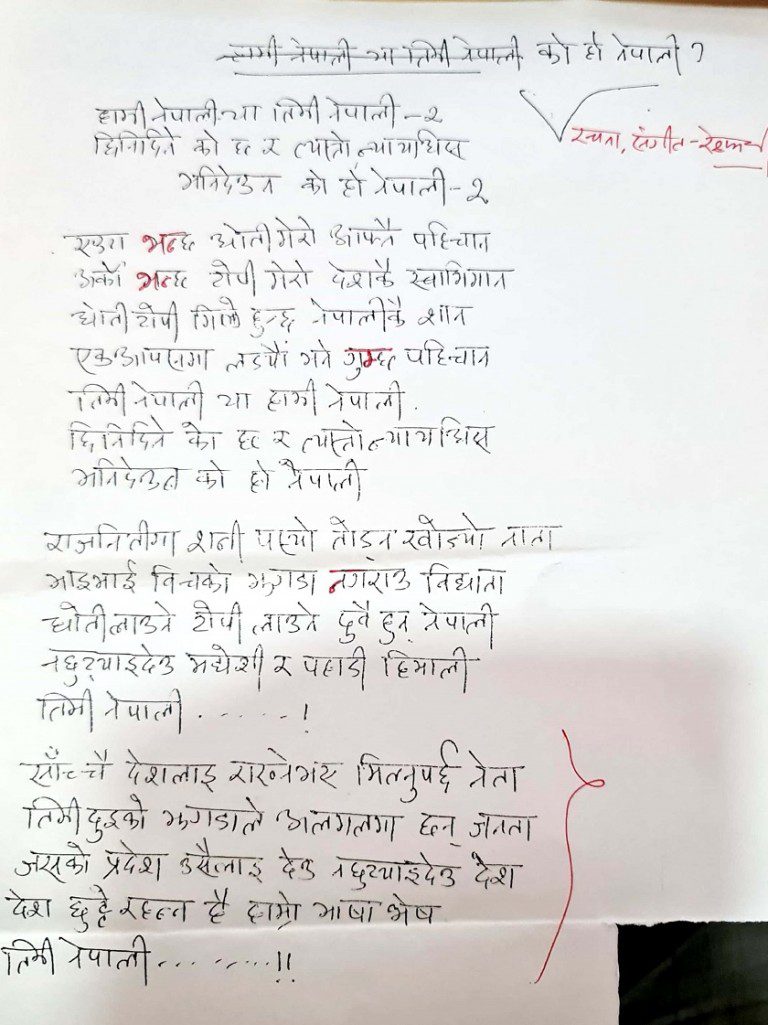 हामी नेपाली या तिमी नेपाली को हो नेपाली ?
हामी नेपाली या तिमी नेपाली - २
छिनिदिने को छ र त्यास्तो न्यायाधिस
भनिदेउन को हो नेपाली - २
रचना, संगीत -
एउटा भन्छ धोती मेरो आफ्नै पहिचान
अर्को भन्छ टोपी मेरो देशकै स्वाभिमान
धोती टोपी मिले हुन्छ नेपालीकै शान
एकआपसमा लड्यौं भने गुम्छ पहिचान
तिमी नेपाली या हामी नेपाली .
छिनिदिने को छ र त्यास्तो न्यायाधिस
भनिदेउन को हो नेपाली
राजनितीमा शनी पस्यो तोड्न खोज्यो नाता
भाइभाई विचको झगडा नगराउ विधाता
धोती लाउने टोपी लाउने दुवै हुन् नेपाली
नछुट्याइदेउ मधेशी र पहाडी हिमाली
तिमी नेपाली . . . . . . !
साँच्चै देशलाइ राख्नेभए मिल्नुपर्छ नेता
तिमी दुइको झगडाले अलगलमा छन् जनता
जसको प्रदेश उसैलाइ देउ नछुट्याइदेउ देश
देश छुट्टे रहन्न है हाम्रो भाषा भेष
तिमी नेपाली . . . . . . . . . !!